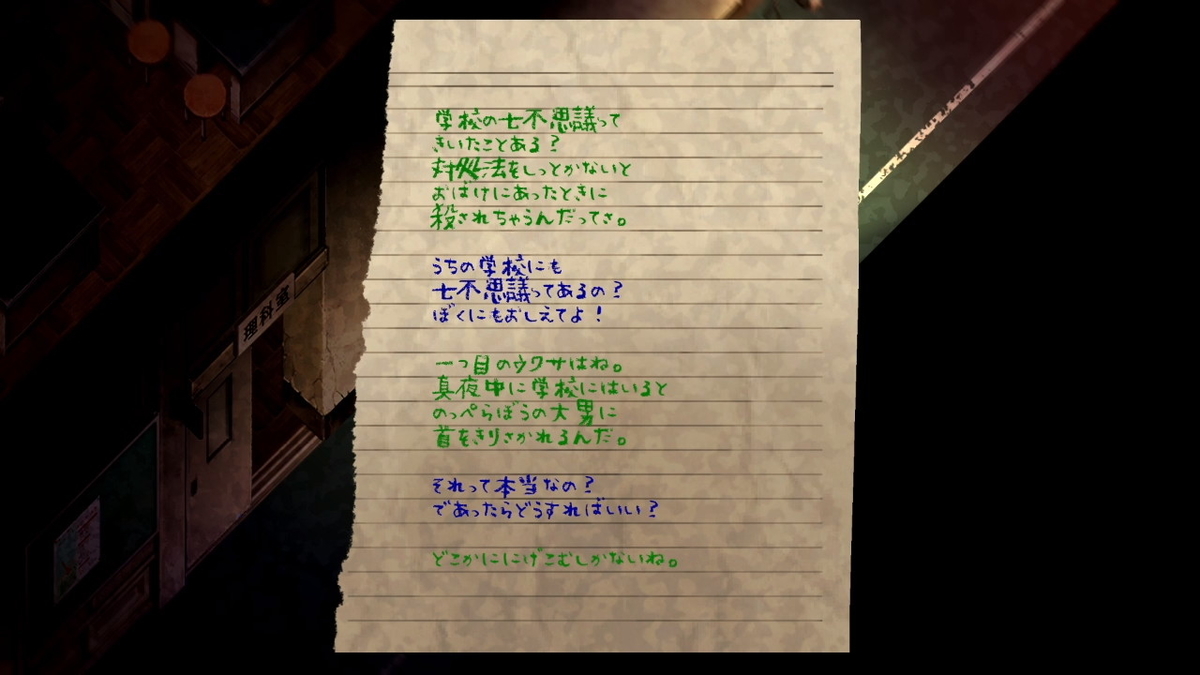 学校の七不思議って
きいたことある?
対処法をしっとかないと
おばけにあったときに
殺されちゃうんだってさ。
うちの学校にも
七不思議ってあるの?
ぼくにもおしえてよ!
一つ目のウワサはね。
真夜中に学校にはいると
のっぺらぼうの大男に
首をきりさかれるんだ。
それって本当なの?
であったらどうすればいい?
どこかににげこむしかないね。
理科室